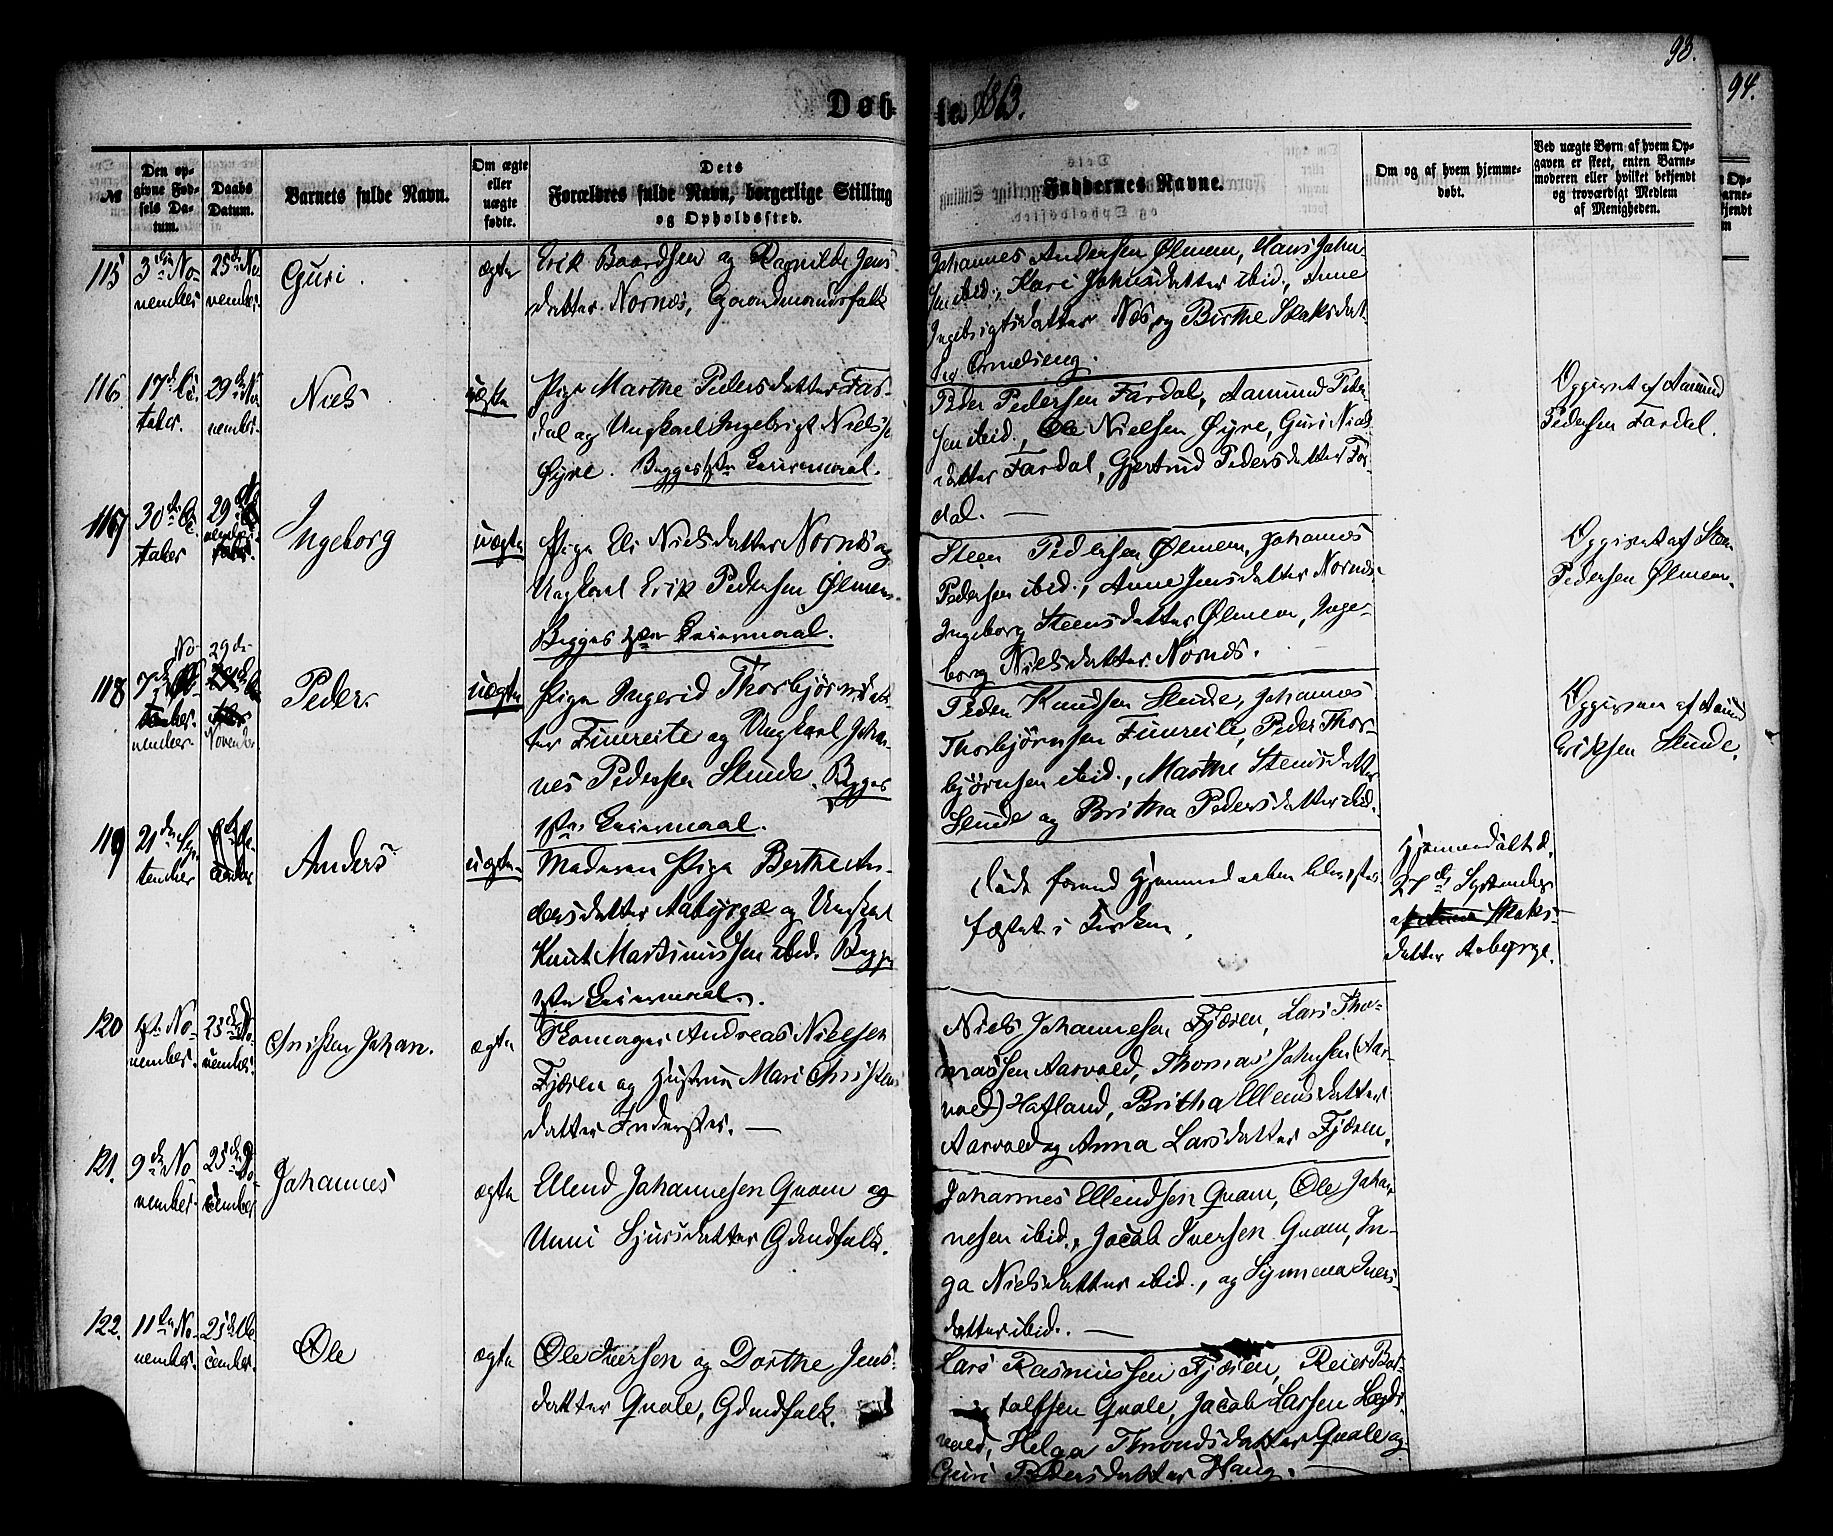 93.
94.
Døb-
te 1863.
№
Den op-
givne Fød-
sels Da-
tum.
Daabs
Datum.
Barnets fulde Navn.
Om ægte
eller
uægte
fødte.
Dets
Forældres fulde Navn, borgerlige Stilling
og Opholdssted.
Faddernes Navne.
Om og af hvem hjemme-
døbt.
Ved uægte Børn af hvem Op-
gaven er skeet, enten Barne-
moderen eller hvilket bekjendt
og troværdigt Medlem
af Menigheden.
115
3die No-
vember
25de No-
vember.
Guri.
ægte
Erik Baardsen og Ragnilde Jens-
datter Nornæs, Gaardmandsfolk
Johannes Andersen Ølmem, Hans John-
sen ibid., Kari Johnsdatter ibid., Anne
Ingebrigtsdatter Næs, og Birthe Staksdat-
ter Ormelseng.
116.
17de Oc-
tober.
29de No-
vember.
Niels
uægte
Pige Marthe Pedersdatter Far-
dal og Ungkarl Ingebrigt Nielsen
Øyre. Begges 1ste Leiermaal.
Peder Pedersen Fardal, Aamund Peder-
sen ibid., Ole Nielsen Øyre, Guri Niels-
datter Fardal, Gjertrud Pedersdatter Far-
dal. —
Opgivet af Aamund
Pedersen Fardal.
117
30te Oc-
tober
29de No-
vember
Ingeborg
uægte
Pige Eli Nielsdatter Nornæs og
Ungkarl Erik Pedersen Ølmem.
Begges 1ste Leiermaal.
Steen Pedersen Ølmem, Johannes
Pedersen ibid., Anne Jensdatter Nornæs,
Ingeborg Steensdatter Ølmem, Inge-
borg Nielsdatter Nornæs.
Opgivet af Steen
Pedersen Ølmem.
118
7de No-
vember.
29de
November
Peder.
uægte
Pige Ingerid Thorbjørnsdat-
ter Fimreite og Ungkarl Johan-
nes Pedersen Slinde. Begges
1ste Leiermaal.
Peder Knudsen Slinde, Johannes
Thorbjørnsen Fimreite, Peder Thor-
bjørnsen ibid., Marthe Steensdatter
Slinde og Britha Pedersdatter ibid.
Opgivet af Aamund
Eriksen Slinde.
119
21de Sep-
tember
Anders
uægte.
Moderen Pige Berthe An-
dersdatter Aabyrge og Ungkarl
Knut Martinussen ibid. Begges
1ste Leiermaal.
Døde forend Hjemmedaaben blev stad-
fæstet i Kirken.
Hjemmedøbt d.
27de September
af Staks-
datter Aabyrge.
120
1ste No-
vember.
25de No-
vember.
Christen Johan.
ægte
Skomager Andreas Nielsen
Fjæren og Hustru Mari Christens-
datter Fardal. —
Niels Johannesen Fjæren, Lars Tho-
massen Aarvold, Thomas Johnsen (Aar-
vold) Hafland, Britha Ellensdatter
Aarvold og Anna Larsdatter Fjæren.
121.
9de No-
vember.
25de De-
cember
Johannes
ægte
Ellend Johannesen Qvam og
Unni Sjursdatter Gdmdfolk.
Johannes Ellendsen Qvam, Ole Johan-
nesen ibid., Jacob Iversen Qvam, In-
ga Nielsdatter ibid., og Synneva Ivers-
datter ibid. —
122.
11te No-
vember.
25de De-
cember.
Ole
ægte
Ole Iversen og Dorthe Jens-
datter Qvale, Gdmdfolk.
Lars Rasmussen Fjæren, Reier Bot-
tolfsen Qvale, Jacob Larsen Lægds-
vold, Helga Throndsdatter Qvale og
Guri Pedersdatter Haug. —